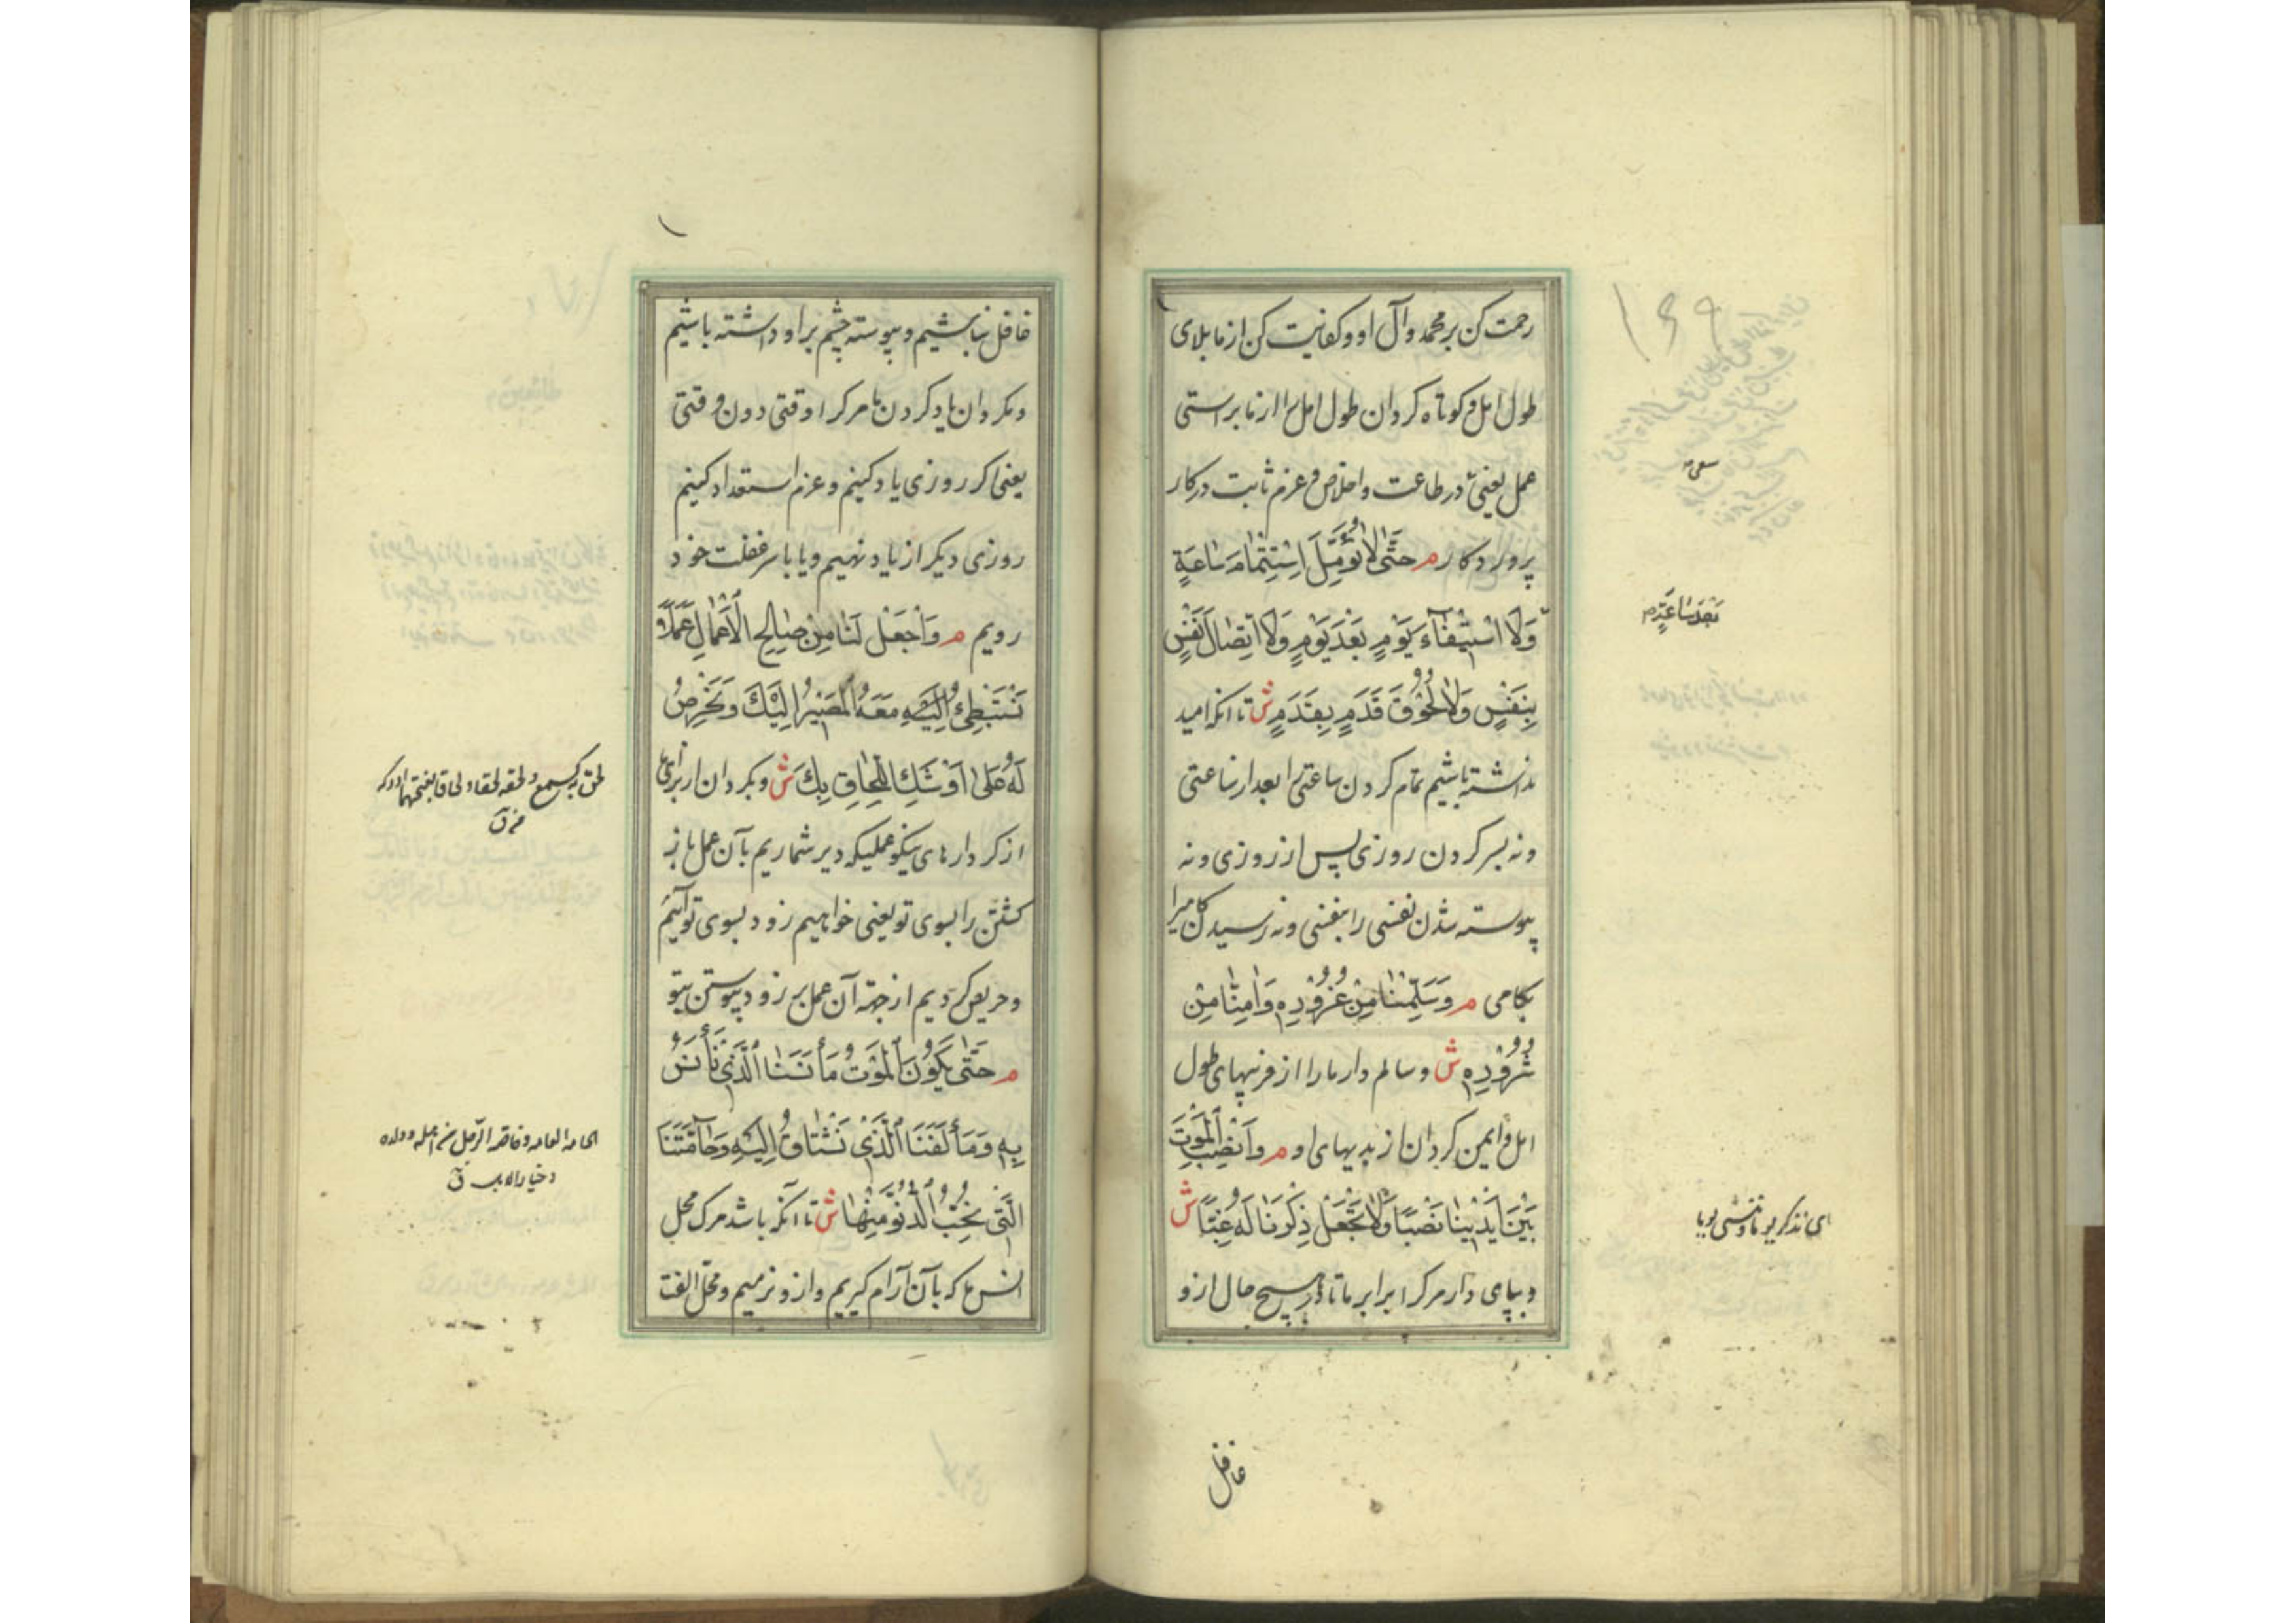 رحمت کن بر محمد و آل او و کفایت کن از ما بلای
طول امل و کوتاه کردان طول امل را از ما براستی
عمل یعنی در طاعت و اخلاص و عزم ثابت در کار
پروردکار م حَتّىٰ لاٰ نُؤَمِّلَ اسْتِتْمٰامَ سٰاعَةٍ
وَلَا اسْتِيْفٰآءَ يَوْمٍ بَعْدَ يَوْمٍ وَلَا اتِّصٰالَ نَفَسٍ
بِنَفَسٍ وَلاٰ لُحُوْقَ قَدَمٍ بِقَدَمٍ ش تا انکه امید
نداشته باشیم تمام کردن ساعتی را بعد از ساعتی
و نه بسر کردن روزی پس از روزی و نه
پیوسته شدن نفسی را بنفسی و نه رسیدن کامیرا
بکامی م وَسَلِّمْنٰا مِنْ غُرُوْرِهِ وَاٰمِنّٰا مِنْ
شُرُوْرِهِ ش و سالم دار ما را از فریبهای طول
امل و ایمن کردان از بدیهای او م وَانْصِبِ الْمَوْتَ
بَيْنَ اَيْدِيْنٰا نَصْبًا وَلاٰ تَجْعَلْ ذِكْرَنٰا لَهُ غِبًّا ش
و بپای دار مرک را برابر ما تا در هیچ حال از و
غافل
۱۶۹
سعی
بَعْدَ سٰاعَةٍ م
ای نذکر یوما و ننسی یوما
غافل نباشیم و پیوسته چشم بر او داشته باشیم
و مکردان یاد کردن ما مرک را وقتی دون وقتی
یعنی اکر روزی یاد کنیم و عزم استعداد کنیم
روزی دیکر از یاد نهیم و یا با سر غفلت خود
رویم م وَاجْعَلْ لَنٰا مِنْ صٰالِحِ الْاَعْمٰالِ عَمَلًا
نَسْتَبْطِئُ اِلَيْكَ مَعَهُ الْمَصِيْرَ اِلَيْكَ وَنَحْرِصُ
لَهُ عَلىٰ اَوْشَكِ اللَّحٰاقِ بِكَ ش و بکردان از برای ما
از کردارهای نیکو عملیکه دیر شماریم بآن عمل باز
کشتن را بسوی تو یعنی خواهیم زود بسوی تو آئیم
و حریص کردیم از جهة آن عمل بر زود پیوستن بتو
م حَتّىٰ يَكُوْنَ الْمَوْتُ مَأْنَسَنَا الَّذِيْ نَأْنَسُ
بِهِ وَمَأْلَفَنَا الَّذِيْ نَشْتٰاقُ اِلَيْهِ وَحٰآمَّتَنَا
الَّتِيْ نُحِبُّ الدُّنُوَّ مِنْهٰا ش تا انکه باشد مرک محل
انس ما که بآن آرام کیریم و از و نرمیم و محل الفت
لحق به کسمع و لحقه لحقا و لحاقا بفتحهما ادرکه
الحامة العامة و خاصة الرجل من اهله و ولده
و خیار الابل ق